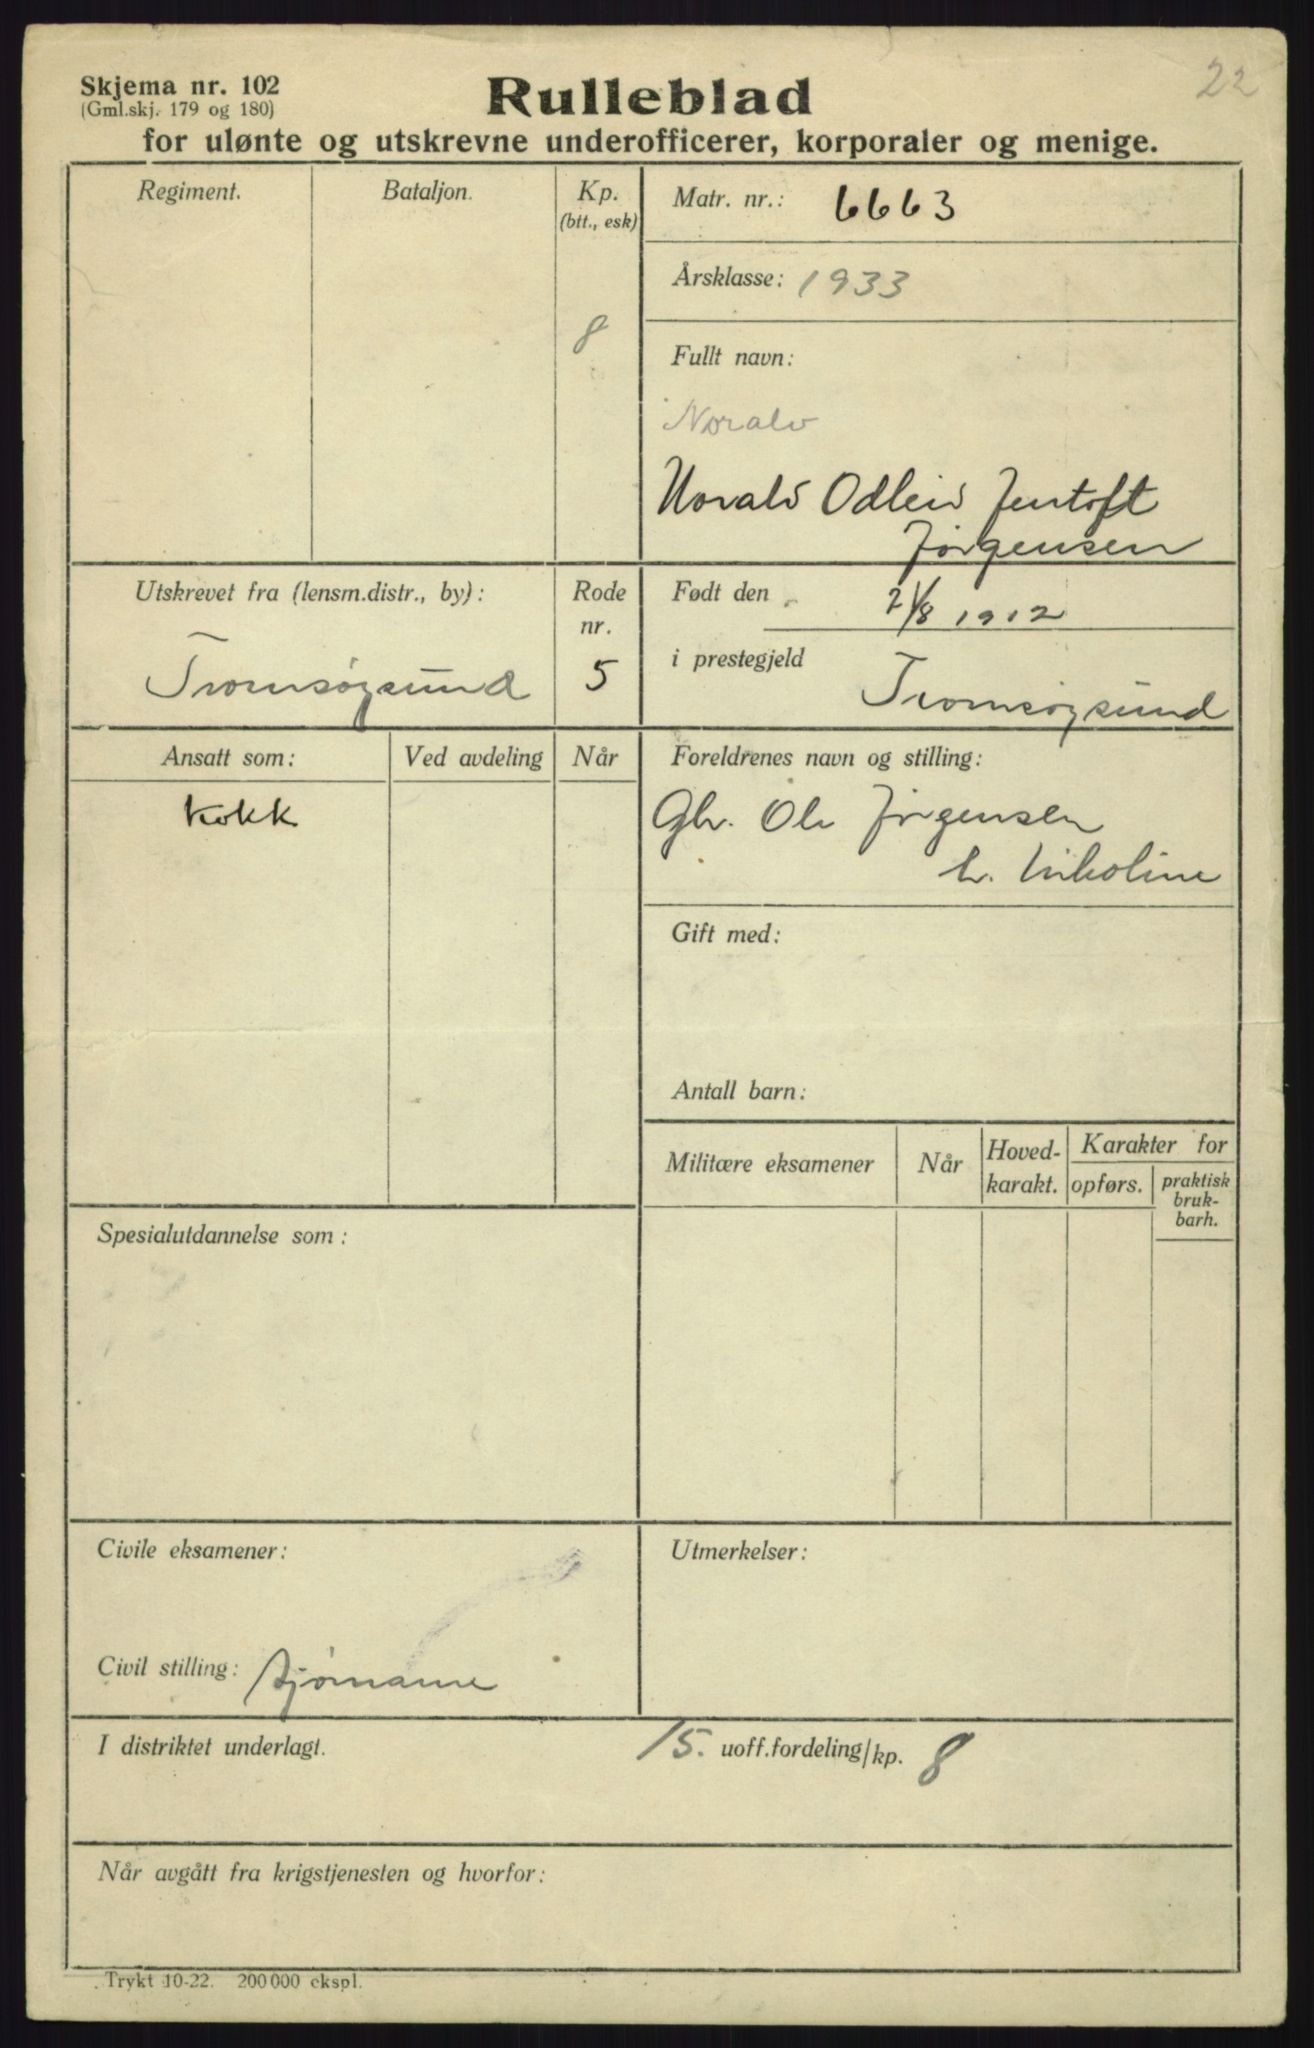 22
Skjema nr. 102
(Gml.skj. 179 og 180)
Rulleblad
for ulønte og utskrevne underofficerer, korporaler og menige.
Regiment.
Bataljon.
Kp.
(btt., esk)
8
Matr. nr.: 6663
Årsklasse: 1933
Fullt navn:
Noralv
Noralv Odleiv Jentoft
Jørgensen
Utskrevet fra (lensm.distr., by):
Tromsøysund
Rode
nr.
5
Født den 21/8 1912
i prestegjeld
Tromsøysund
Ansatt som:
Ved avdeling
Når
Kokk
Foreldrenes navn og stilling:
Gbr. Ole Jørgensen
h. Nikoline
Gift med:
Antall barn:
Militære eksamener
Når
Hoved-
karakt.
Karakter for
opførs.
praktisk
bruk-
barh.
Spesialutdannelse som:
Civile eksamener:
Civil stilling: sjømann
Utmerkelser:
I distriktet underlagt. 15. uoff.fordeling/kp. 8
Når avgått fra krigstjenesten og hvorfor:
Trykt 10-22. 200 000 ekspl.